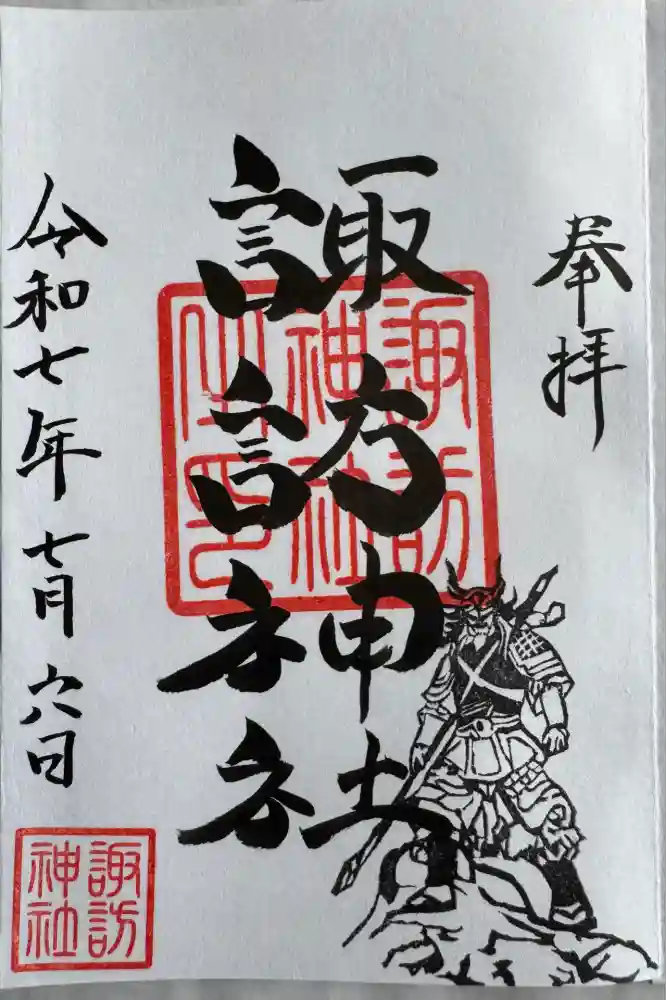 奉拝
諏訪神社
令和七年七月六日
諏訪
神社
之印
諏訪
神社